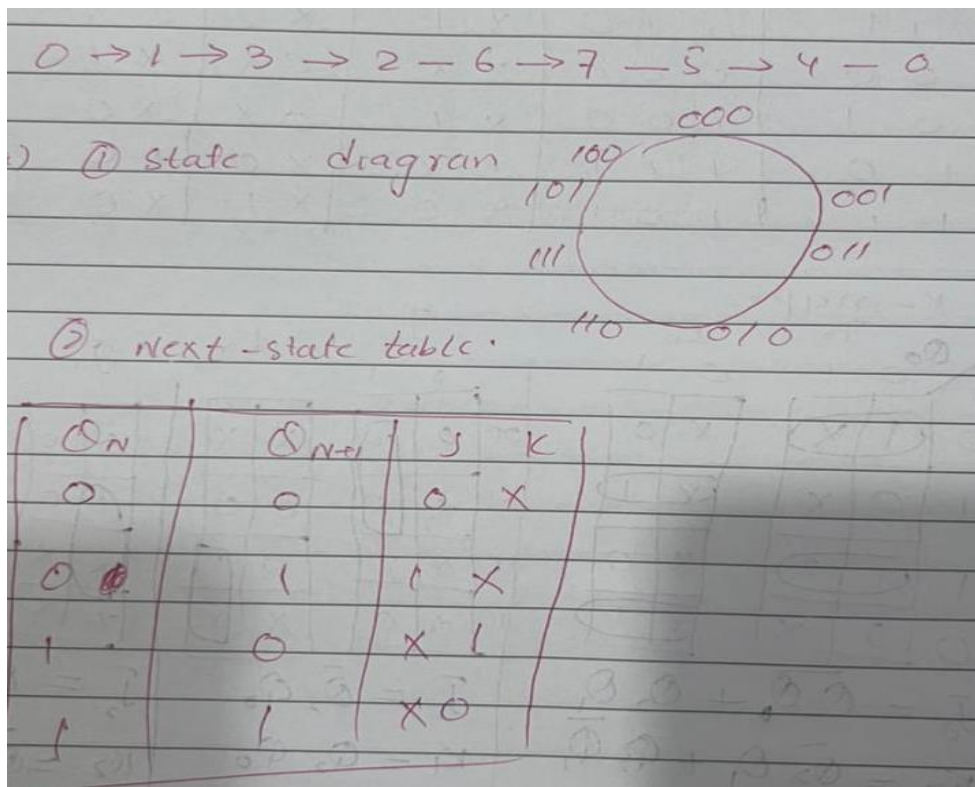 0 → 1 → 3 → 2 — 6 → 7 — 5 → 4 — 0
① State diagran
000
100
101
001
111
011
110
010
② Next-state table.
QN QN+1 J K
0 0 0 X
0 1 1 X
1 0 X 1
1 1 X 0